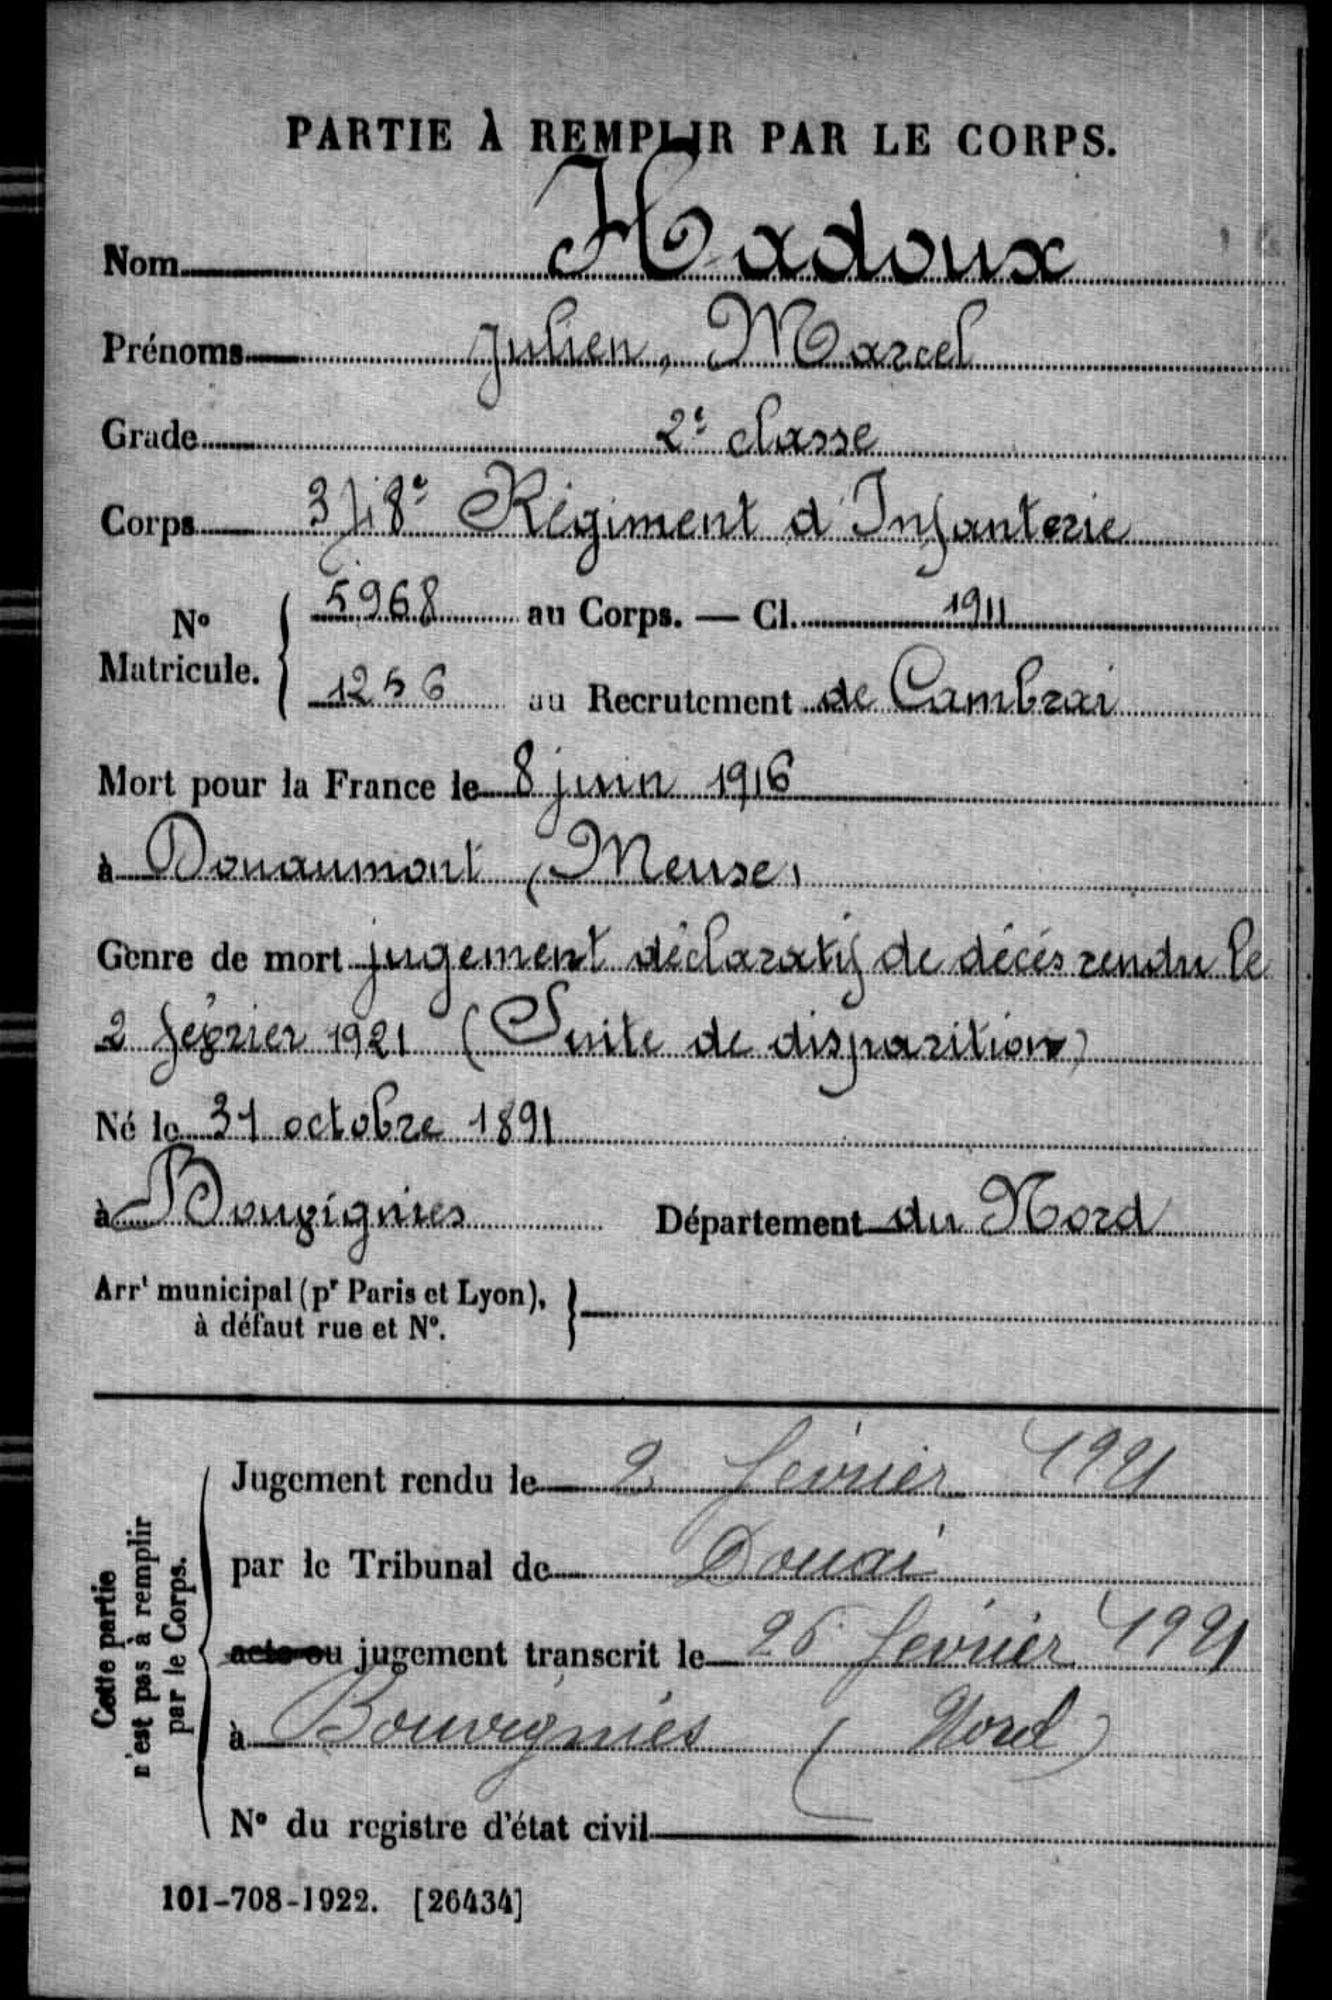 PARTIE À REMPLIR PAR LE CORPS.
Nom Hadoux
Prénoms Julien, Marcel
Grade 2e classe
Corps 348e Régiment d'Infanterie
No Matricule. 5968 au Corps. — Cl. 1911
1256 au Recrutement de Cambrai
Mort pour la France le 8 juin 1916
à Douaumont (Meuse)
Genre de mort jugement déclaratif de décés rendu le
2 février 1921 (Suite de disparition)
Né le 31 octobre 1891
à Bouvignies Département du Nord
Arrt municipal (pr Paris et Lyon),
à défaut rue et No.
Cette partie
n'est pas à remplir
par le Corps.
Jugement rendu le 2 février 1921
par le Tribunal de Douai
acte ou jugement transcrit le 26 février 1921
à Bouvignies (Nord)
No du registre d'état civil
101-708-1922. [26434]